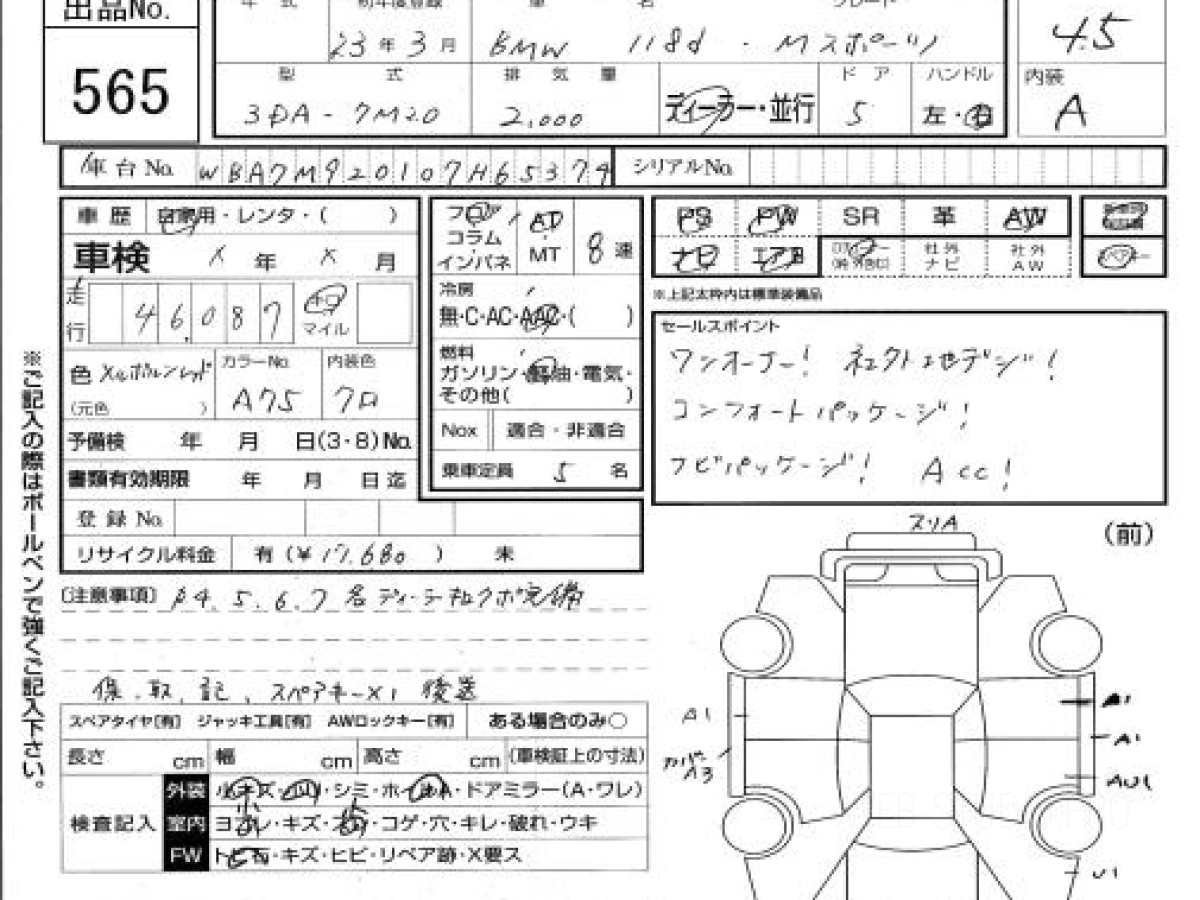 出品No.
年 式 初年度登録 車 名 グレード
565
23年 3月 BMW 118d ・ Mスポーツ 4.5
型 式 排 気 量 ドア ハンドル 内装
3DA - 7M20 2,000 ディーラー・並行 5 左・右 A
車台No. WBA7M920107H65379 シリアルNo.
車歴 自家用・レンタ・( ) フロア AT 8 速 PS PW SR 革 AW
コラム ・
インパネ MT
車検 × 年 × 月 ナビ エアB 社外ナビ 社外AW
※上記太枠内は標準装備品
走行 46,087 キロ マイル
冷房
無・C・AC・AAC・( )
セールスポイント
ワンオーナー!
コンフォートパッケージ!
ナビパッケージ! Acc!
色 メルボルンレッド カラーNo. A75 内装色 クロ
(元色 )
燃料
ガソリン・軽油・電気・
その他( )
予備検 年 月 日(3・8)No.
Nox 適合・非適合
書類有効期限 年 月 日迄
乗車定員 5 名
登録No.
リサイクル料金 有 (¥17,680 ) 未
スリA
(前)
〔注意事項〕 R4.5.6.7
保、取、記、スペアキー×1 後送
スペアタイヤ[有] ジャッキ工具[有] AWロックキー[有] ある場合のみ○
長さ cm 幅 cm 高さ cm (車検証上の寸法)
検査記入
外装 小キズ・ ・シミ・ホイールA・ドアミラー(A・ワレ)
室内 ヨゴレ・キズ・ ・コゲ・穴・キレ・破れ・ウキ
FW トビ石・キズ・ヒビ・リペア跡・X要ス
A1
カバーA3
A1
A1
AU1
U1
※ご記入の際はボールペンで強くご記入下さい。